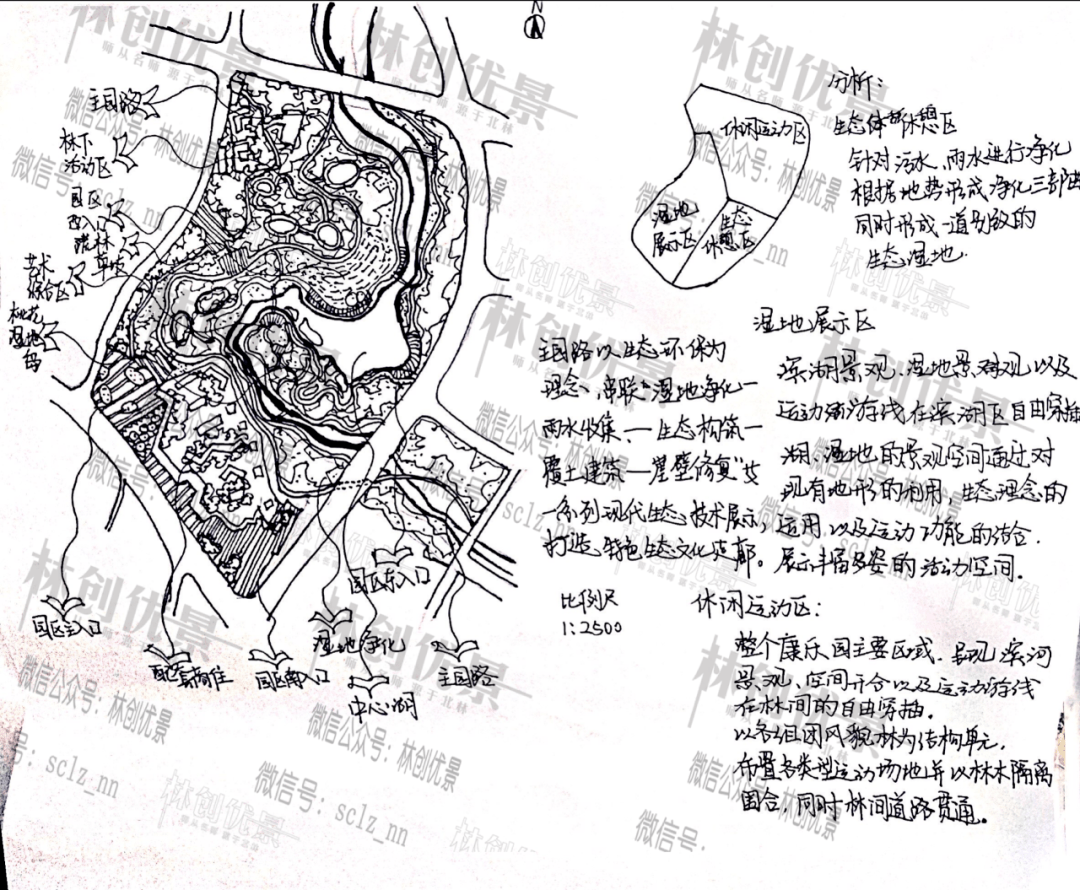 N
主园路
林下
活动区
园区
西入口
疏林
草坡
艺术
综合区
桃花
湿地
岛
园区主入口
配套商住
园区南入口
湿地净化
中心湖
园区东入口
主园路
休闲运动区
湿地
展示区
生态
休憩区
分析：
生态体验休憩区
针对污水、雨水进行净化
根据地势形成净化三部曲
同时形成一道别致的
生态湿地.
主园路以生态环保为
理念、串联"湿地净化—
雨水收集、—生态构筑—
覆土建筑—崖壁修复"女
一系列现代生态技术展示，
打造特色生态文化走廊。
比例尺
1:2500
湿地展示区
滨湖景观、湿地景观以及
运动游线在滨湖区自由穿插
湖、湿地的景观空间通过对
现有地形的利用、生态理念的
运用以及运动功能的结合.
展示丰富多姿的活动空间.
休闲运动区：
整个康乐园主要区域.呈现滨河
景观，空间开合以及运动游线
在林间的自由穿插.
以各组团风貌林为结构单元.
布置各类型运动场地并以林木隔离
围合，同时林间道路贯通。
林创优景
师从名师 源于北林
微信公众号：林创优景
微信号：sclz_nn